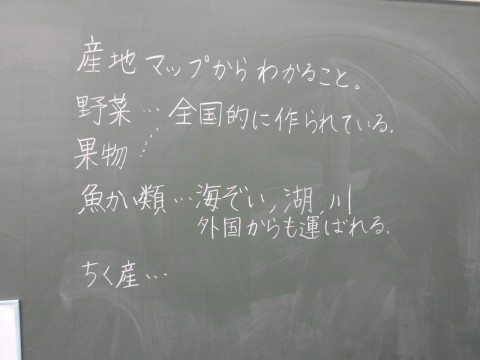 産地マップからわかること。
野菜…全国的に作られている.
果物…
魚かい類…海ぞい,湖,川
外国からも運ばれる.
ちく産…